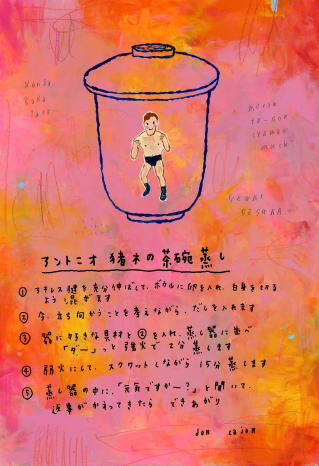 アントニオ 猪木の茶碗蒸し
① アキレス腱を充分伸ばして、ボウルに卵を入れ、白身を切る
よう混ぜます
② 今、立ち向かうことを考えながら、だしを入れます
③ 器に好きな具材と②を入れ、蒸し器に並べ
「ダー」っと強火で2分蒸します
④ 弱火にして、スクワットしながら 15分蒸します
⑤ 蒸し器の中に、「元気ですかー?」と聞いて、
返事がかえってきたら できあがり
don cajon